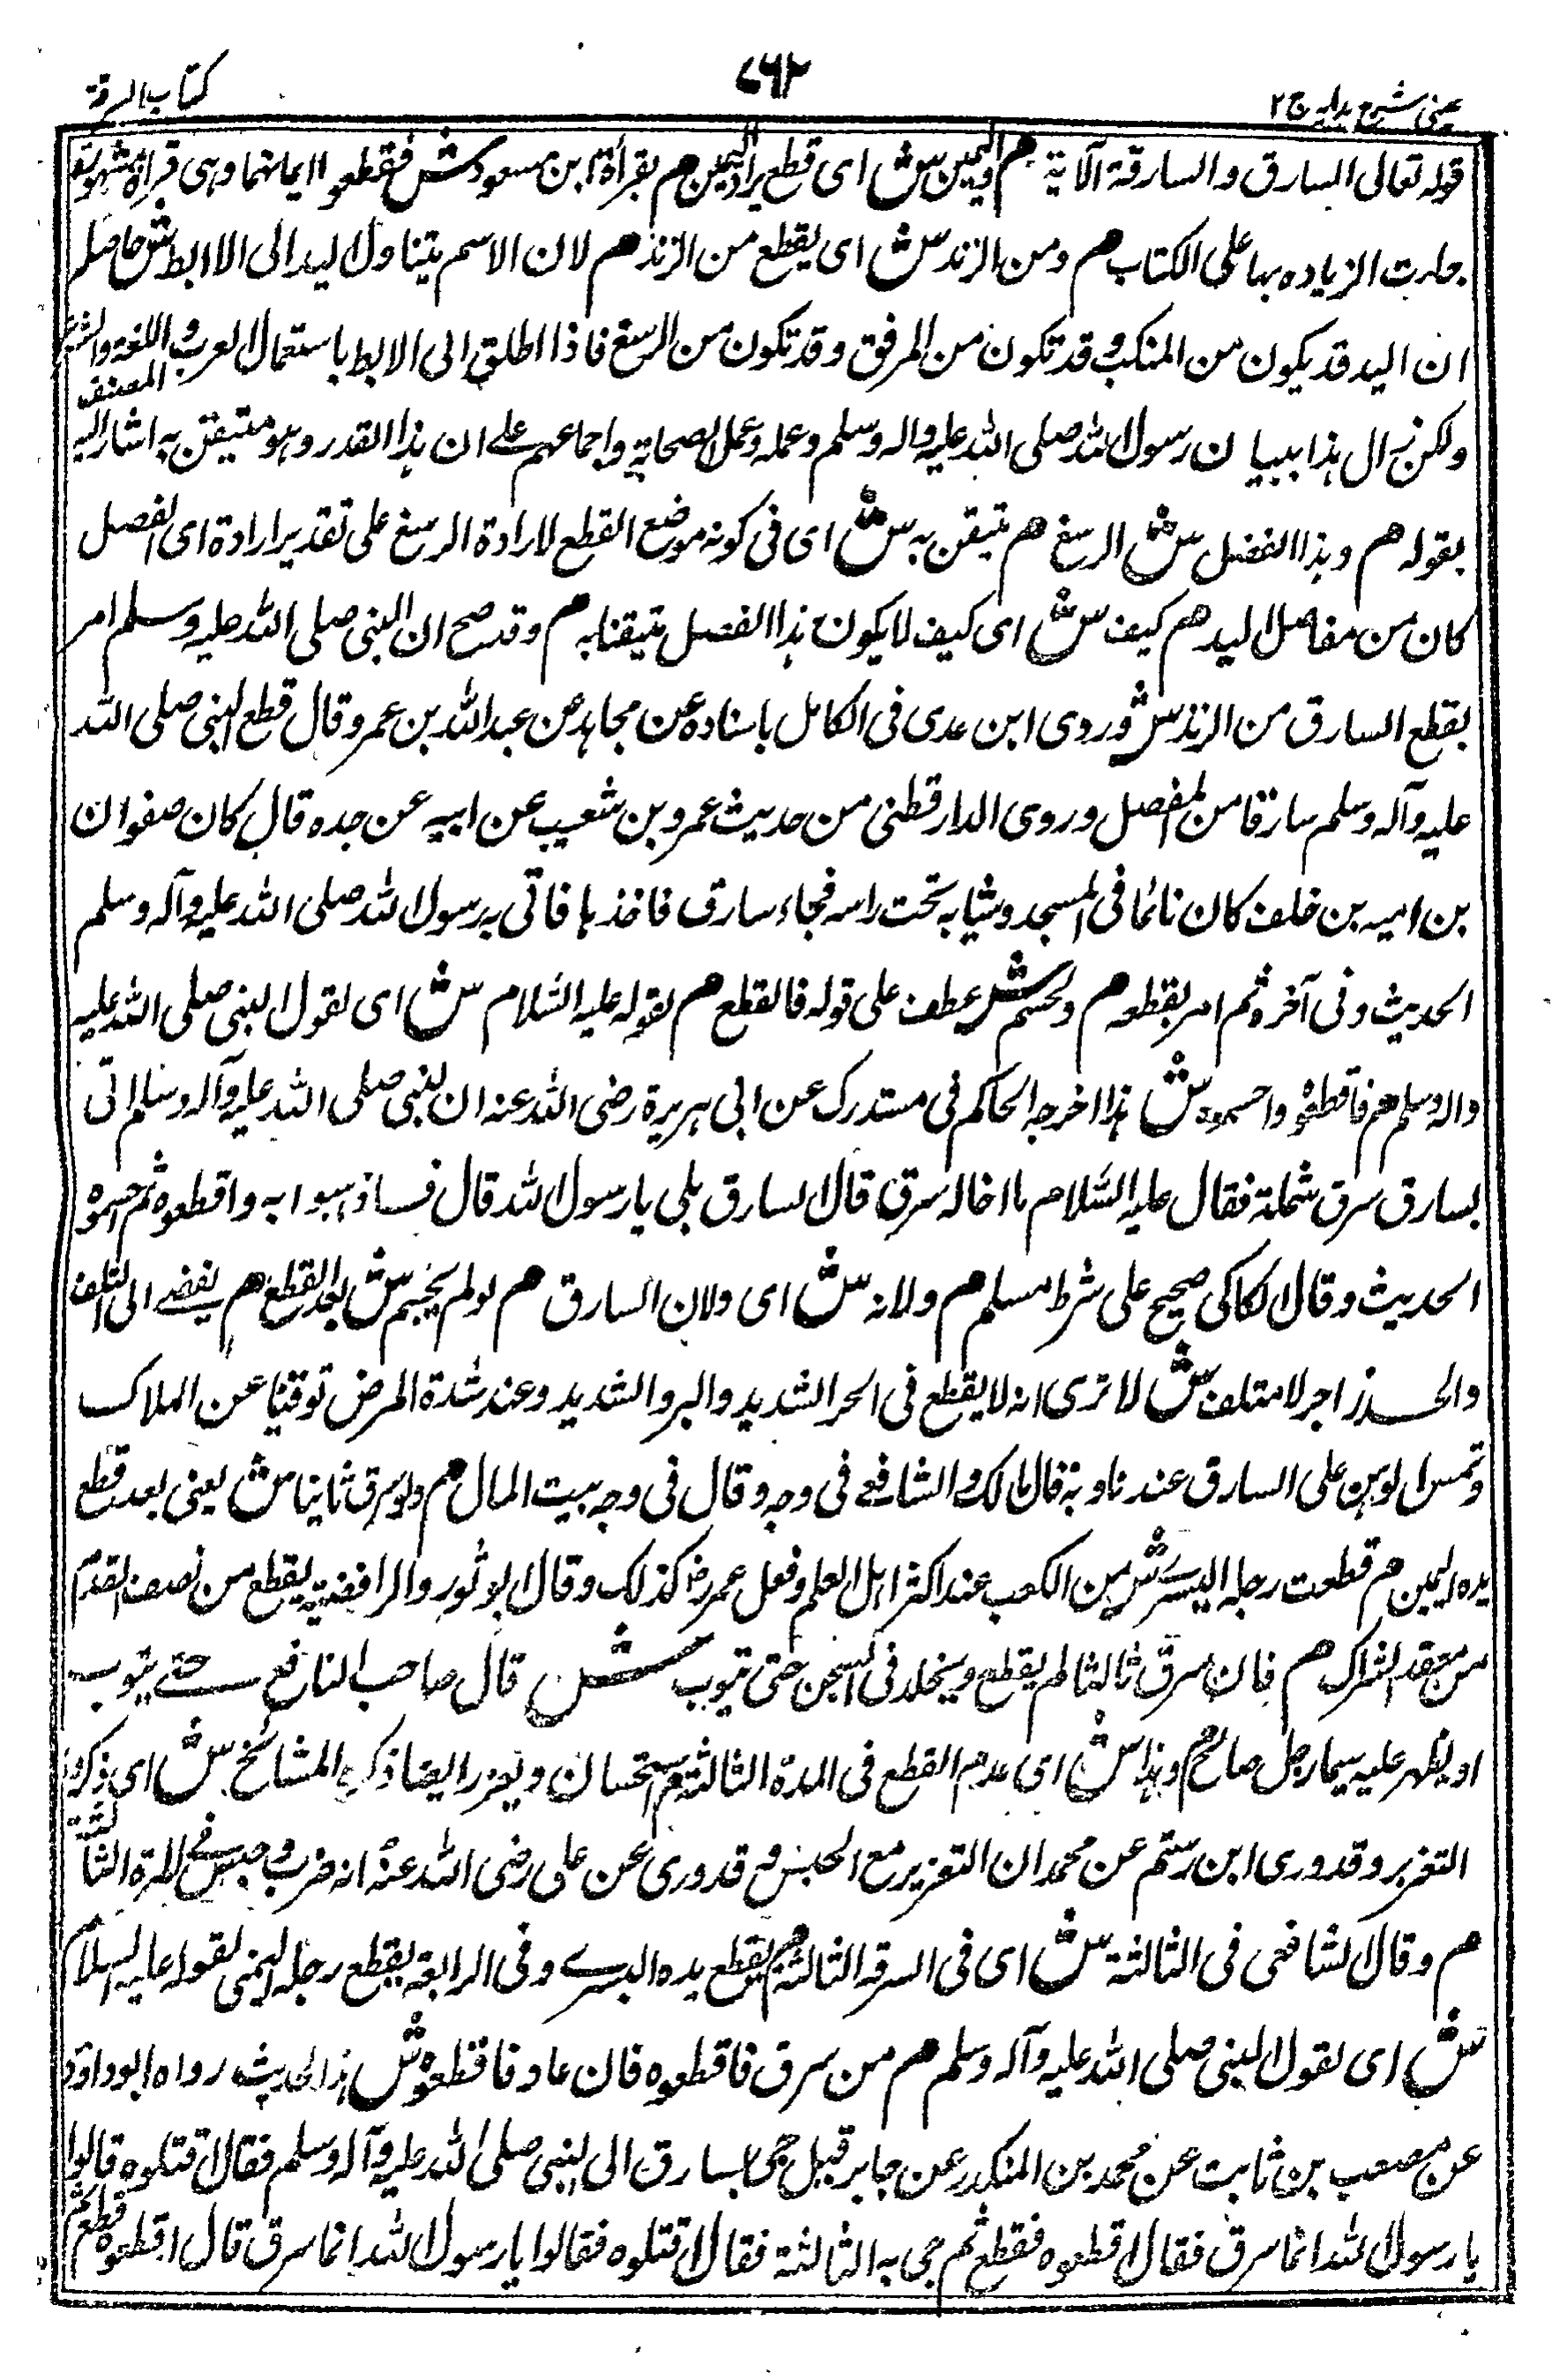 عینی شرح ہدایہ ج۲
۷۶۲
کتاب السرقۃ
قوله تعالى السارق والسارقة الآية هم واليمين ش اى قطع يراد اليمين هم بقرأة ابن مسعود ش فقطعوا ايمانهما وهى قرأة مشهورة
جازت الزيادة بها على الكتاب هم ومن الزند ش اى يقطع من الزند هم لان الاسم يتناول اليد الى الابط ش حاصله
ان اليد قد يكون من المنكب وقد تكون من المرفق وقد تكون من الرسغ فاذا اطلق الى الابط باستعمال العرب واللغة والشرع
ولكن زال هذا ببيان رسول الله صلى الله عليه واله وسلم وعمله وعمل الصحابة واجماعهم على ان هذا القدر وهو متيقن به اشار اليه المصنف
بقوله هم وهذا المفصل ش الرسغ هم متيقن به ش اى فى كونه موضع القطع لارادة الرسغ على تقدير ارادة اى المفصل
كان من مفاصل اليد هم كيف ش اى كيف لا يكون هذا المفصل متيقنا به هم وقد صح ان النبى صلى الله عليه وسلم امر
بقطع السارق من الزند ش وروى ابن عدى فى الكامل باسناده عن مجاهد عن عبد الله بن عمرو قال قطع النبى صلى الله
عليه وآله وسلم سارقا من المفصل وروى الدارقطنى من حديث عمرو بن شعيب عن ابيه عن جده قال كان صفوان
بن اميه بن خلف كان نائما فى المسجد وثيابه تحت راسه فجاء سارق فاخذها فاتى به رسول الله صلى الله عليه وآله وسلم
الحديث وفى آخره ثم امر بقطعه هم ولحسم ش عطف على قوله فالقطع هم لقوله عليه السلام ش اى لقول النبى صلى الله عليه
واله وسلم هم فاقطعوه واحسموه ش هذا اخرجه الحاكم فى مستدرك عن ابى هريرة رضى الله عنه ان النبى صلى الله عليه وآله وسلم اتى
بسارق سرق شملة فقال عليه السلام ما اخاله سرق قال السارق بلى يا رسول الله قال فاذهبوا به واقطعوه ثم احسموه
الحديث وقال الكاكى صحيح على شرط مسلم هم ولانه ش اى ولان السارق هم لو لم يحسم ش بعد القطع هم يفضے الى التلف
والحد زاجر لا متلف ش لا ترى انه لا يقطع فى الحر الشديد والبرد الشديد وعند شدة المرض توقيا عن الهلاك
وثمن الدهن على السارق عندنا وبه قال مالك والشافعے فى وجه وقال فى وجه بيت المال هم ولو سرق ثانيا ش يعنى بعد قطع
يده اليمين هم قطعت رجله اليسرى ش من الكعب عند اكثر اهل العلم وفعل عمر رض كذلك وقال ابو ثور والرافضية يقطع من نصف القدم
من معقد الشراك هم فان سرق ثالثا لم يقطع ويخلد فى السجن حتى يتوب ش قال صاحب النافع حتے يتوب
او يظهر عليه سيما رجل صالح هم وهذا ش اى عدم القطع فى المدة الثالثة هم استحسان ويعزر ايضا ذكره المشائخ ش اى ذكروا
التعزير وقد روى ابن رستم عن محمد ان التعزير مع الحبس وقد روى عن على رضى الله عنه انه ضرب وحبس فى المرة الثالثة
هم وقال الشافعى فى الثالثة ش اى فى السرقة الثالثة هم يقطع يده اليسرے وفى الرابعة يقطع رجله اليمنى لقوله عليه السلام
ش اى لقول النبى صلى الله عليه وآله وسلم هم من سرق فاقطعوه فان عاد فاقطعوه ش هذا الحديث رواه ابو داؤد
عن مصعب بن ثابت عن محمد بن المنكدر عن جابر قبل جى بسارق الى النبى صلى الله عليه وآله وسلم فقال اقتلوه قالوا
يا رسول الله انما سرق فقال اقطعوه فقطع ثم جى به الثالثة فقال اقتلوه فقالوا يا رسول الله انما سرق قال اقطعوه فقطع ثم